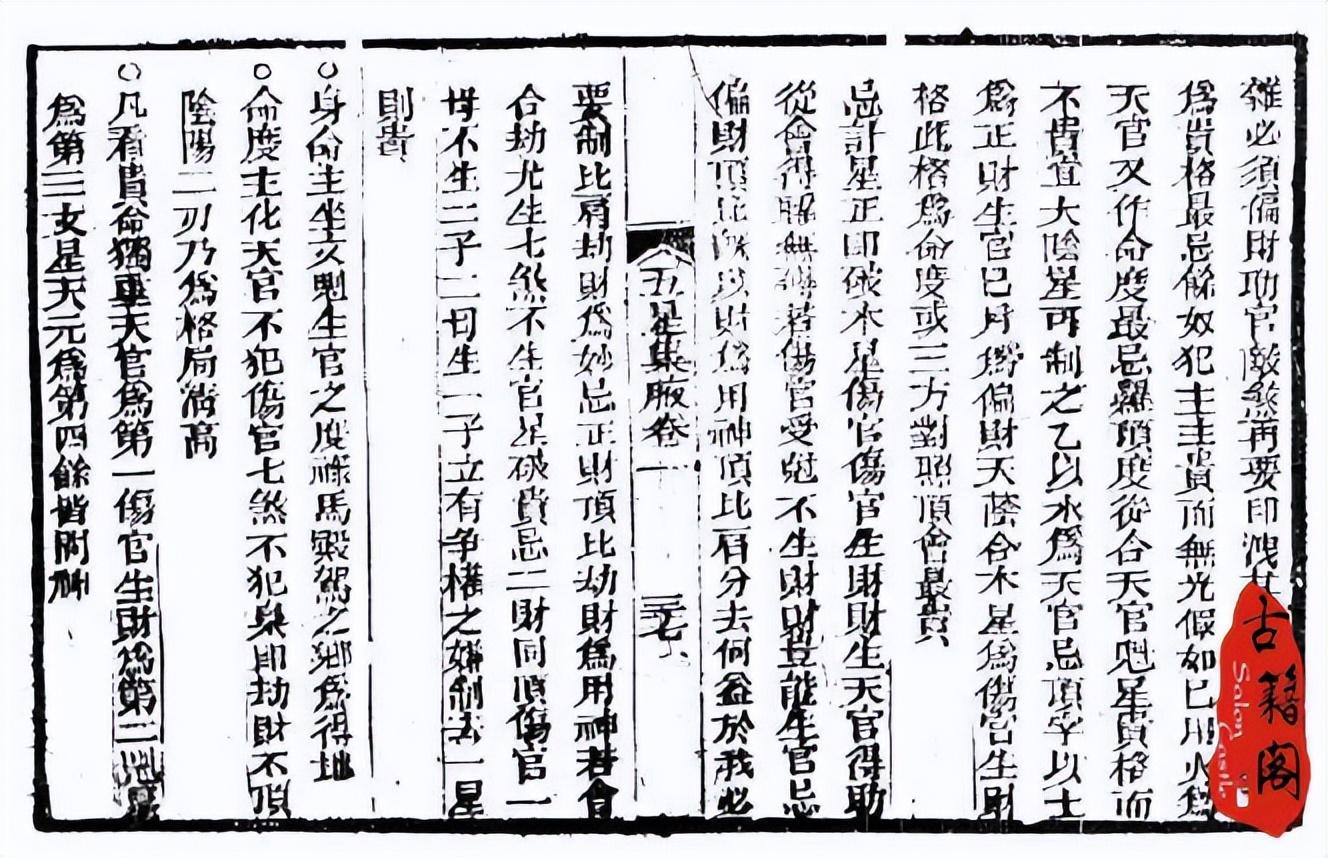 雜必須偏財功官敵煞再要印洩其
為貴格最忌餘奴犯主主貴而無光假如巳用火為
天官又作命度最忌羅頂度從合天官剋星貴格而
不貴宜大陰星再制之乙以水為天官忌頂孛以土
為正財生官巳月為偏財天蔭合木星為傷官生財
格此格為命度或三方對照頂會最貴
忌計星正印破木星傷官傷官生財財生天官得助
從會得 無 若傷官受尅不生財財豈能生官忌
偏財頂比 以財為用神頂比肩分去何益於我必
五星集腋卷一
三七
要制比肩劫財為妙忌正財頂比劫財為用神若會
合劫尤生七煞不生官星破貴忌二財同頂傷官一
母不生二子二母生一子立有爭權之嫌制去一星
則貴
○身命主坐文魁生官之度祿馬殿駕之鄉為得地
○命度主化天官不犯傷官七煞不犯梟印劫財不頂
陰陽二刃乃為格局清高
○凡看貴命獨重天官為第一傷官生財為第二 星
為第三女星天元為第四餘皆附神
古籍閣
Salon Castle